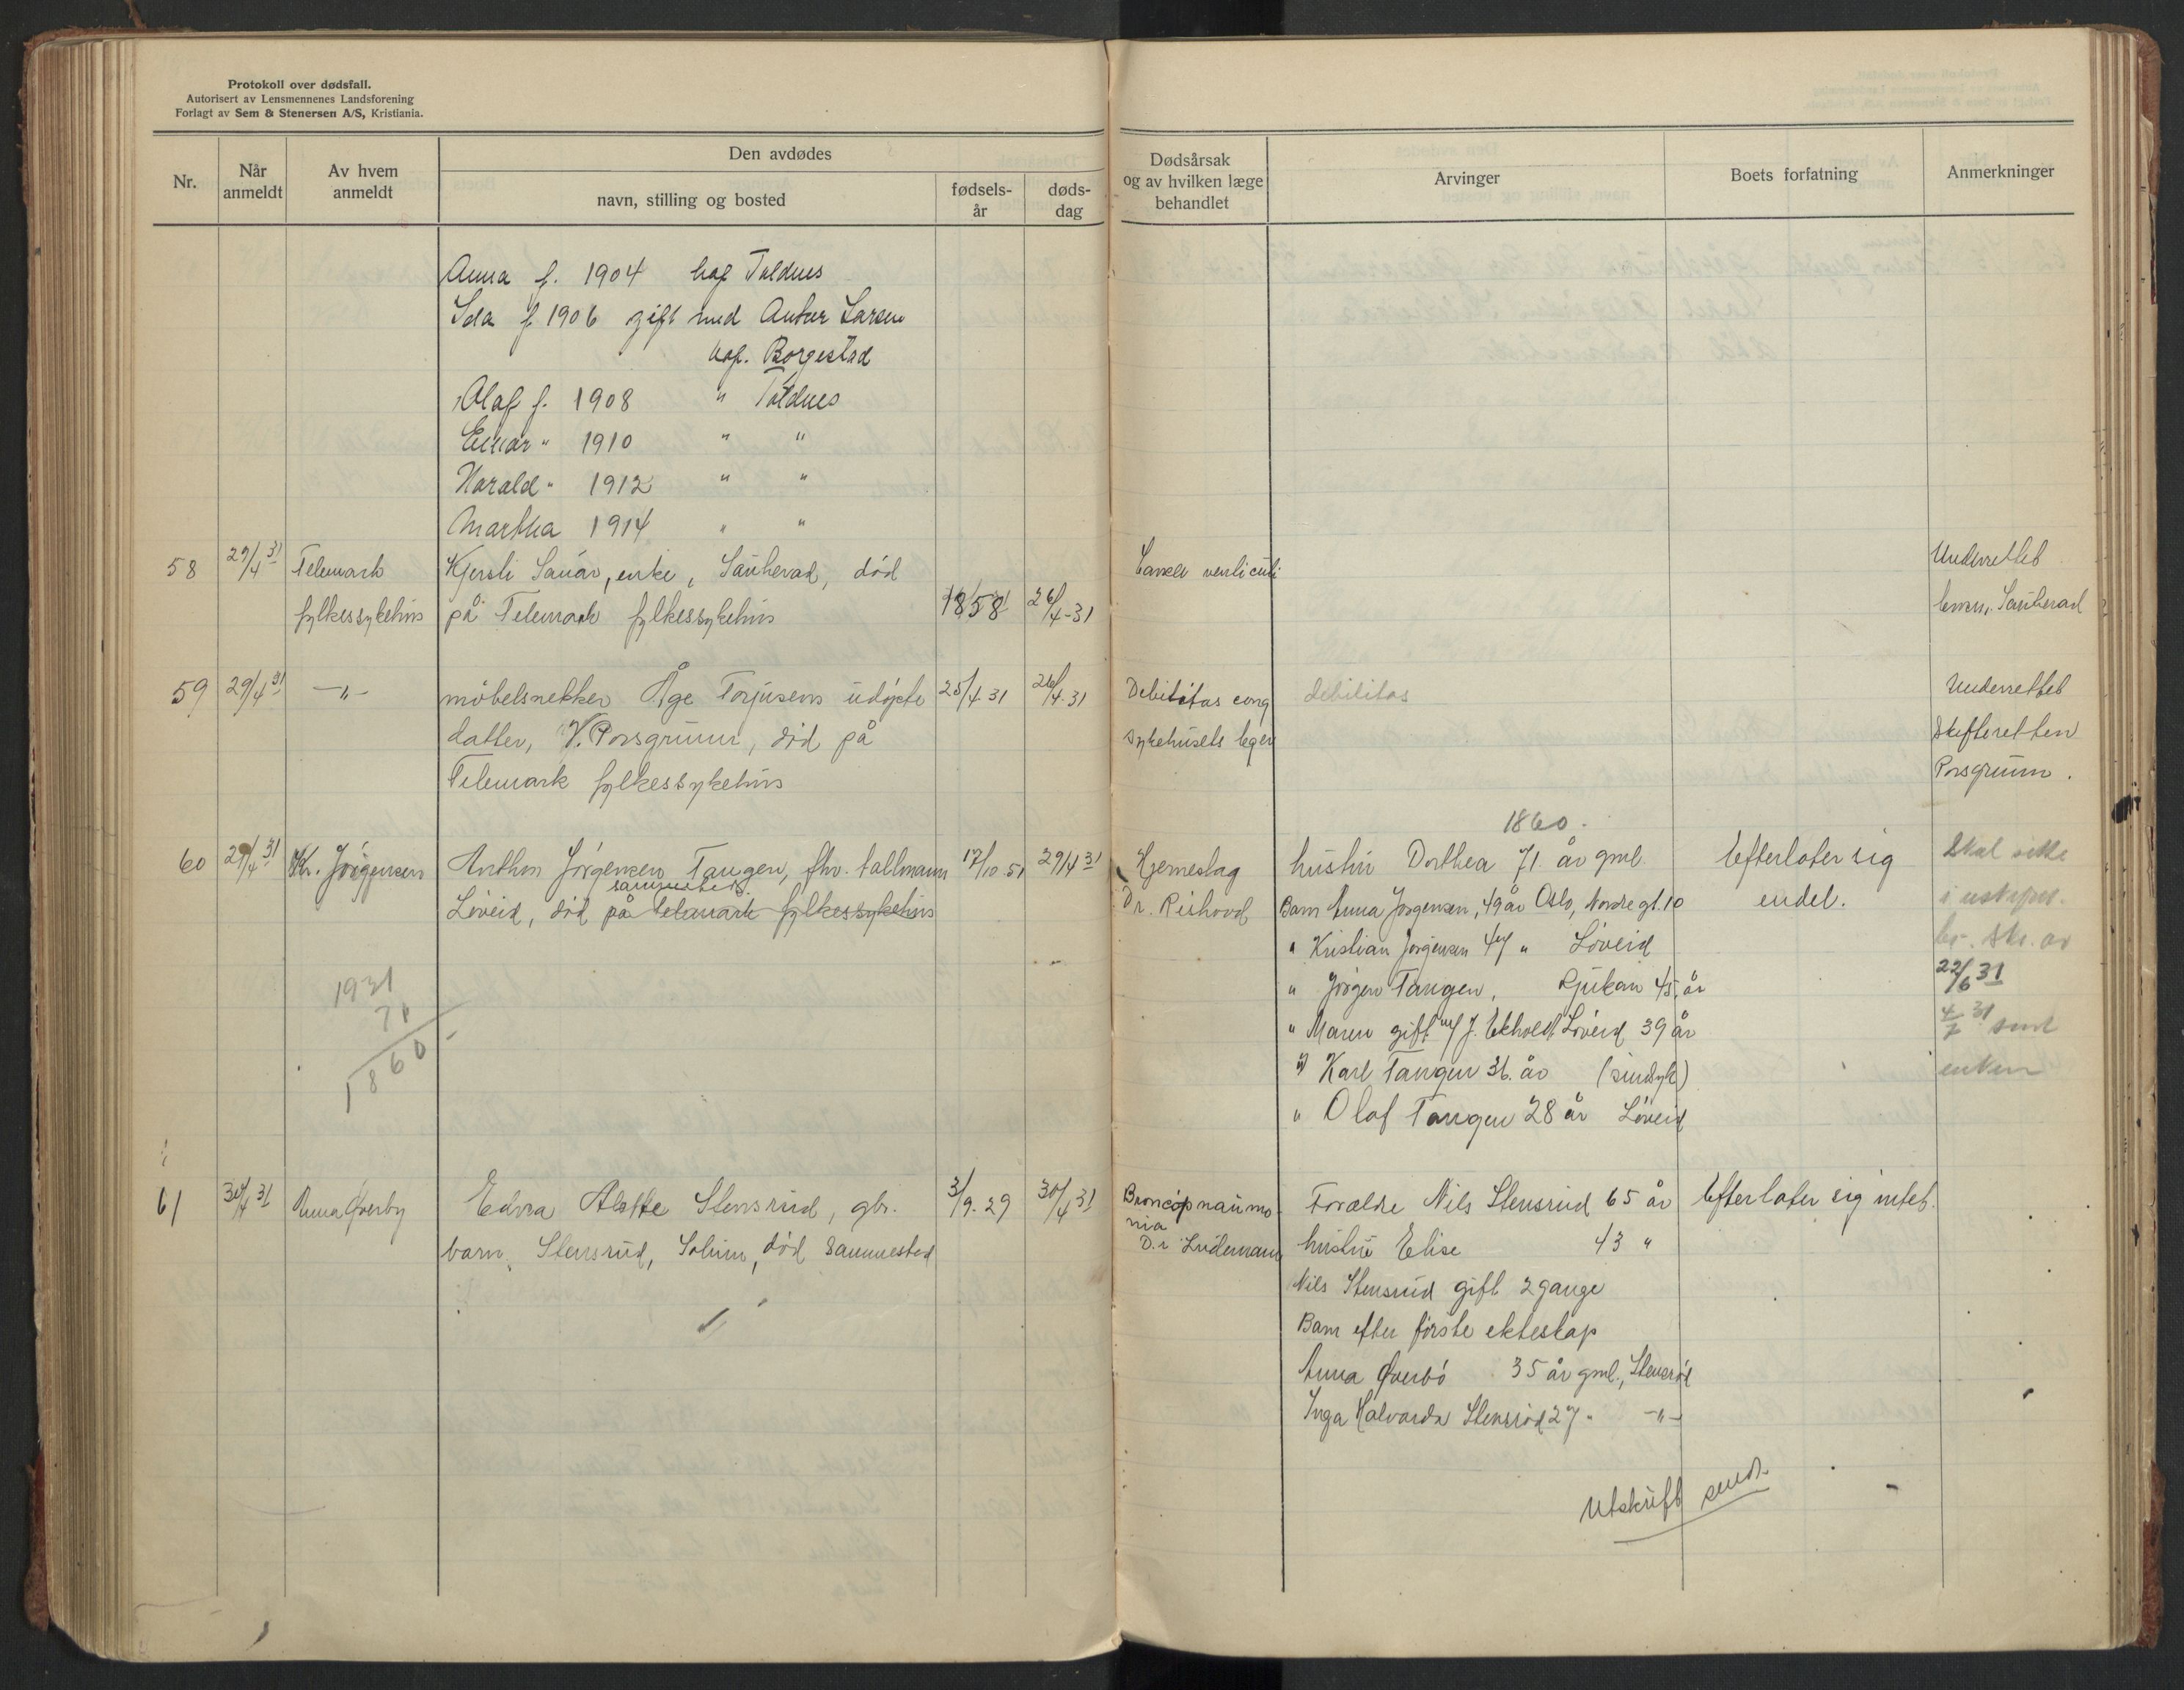 Protokoll over dødsfall.
Autorisert av Lensmennenes Landsforening
Forlagt av Sem & Stenersen A/S, Kristiania.
Nr.
Når anmeldt
Av hvem anmeldt
Den avdødes
navn, stilling og bosted
fødsels-år
døds-dag
Dødsårsak og av hvilken læge behandlet
Arvinger
Boets forfatning
Anmerkninger
Anna f. 1904 bop Toldnes
Ida f 1906 gift med Larsen
bop. Borgestad
Olaf f. 1908 " Toldnes
Einar " 1910 " "
Harald " 1912 " "
Martha 1914 " "
58 29/4 31 Telemark Kjersti Sauar, enke, Sauherad, død Underrettet
fylkessykehus på Telemark fylkessykehus 1858 26/4-31 Sauherad
59 29/4 31 -"- møbelsnekker Åge Torjusens udøpte 25/4 31 26/4.31 Debilitas cong debilitas Underrettet
datter, V. Porsgrunn, død på sykehusets leger Skifteretten
Telemark fylkessykehus Porsgrunn.
1860.
60 29/4 31 Kr. Jørgensen Anthon Jørgensen Tangen, fhv. tallmann 17/10.51 29/4 31 Hjerneslag hustru Dorthea 71 år gml. Efterlater sig Skal sitte
sammested
Løveid, død på Telemark fylkessykehus Dr. Reishovd Barn Anna Jørgensen, 49 år Oslo, Nordregt. 10 endel. i uskiftet
" Kristian Jørgensen 47 " Løveid
1931 " Jørgen Tangen, Rjukan 45 år 22/6 31
71 " Maren gift m/ J. Ekholdt Løveid 39 år 4/7 31 sendt
1860 " Karl Tangen 36 år (sindsyk) enken
" Olaf Tangen 28 år Løveid
61 30/4 31 Anna Øverby Edvra Alette Stensrud, gbr. 3/9.29 30/4 31 Broncopnaumo Forældre Nils Stensrud 65 år Efterlater sig intet.
nia
barn, Stensrud, Solum, død sammested D.r Lindemann hustru Elise 43 "
Nils Stensrud gift 2 gange
Barn efter første ekteskap
Anna Øverbø 35 år gml., Stensrød
Inga Halvarda Stensrød 27 " -"-
Utskrift sendt